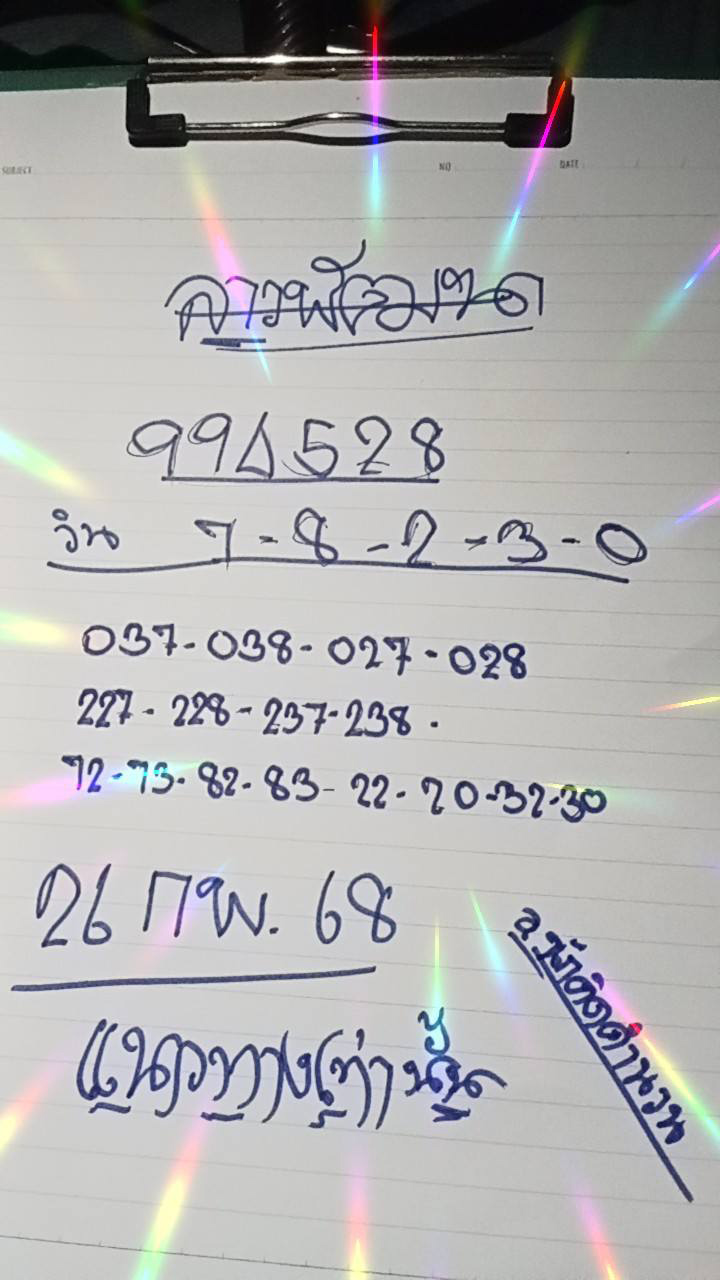 SUBJECT NO. DATE
ลาวพัฒนา
994528
วิน 7-8-2-3-0
037-038-027-028
227-228-237-238.
72-73-82-83-22-20-32-30
26 กพ. 68
แนวทางเท่านั้น